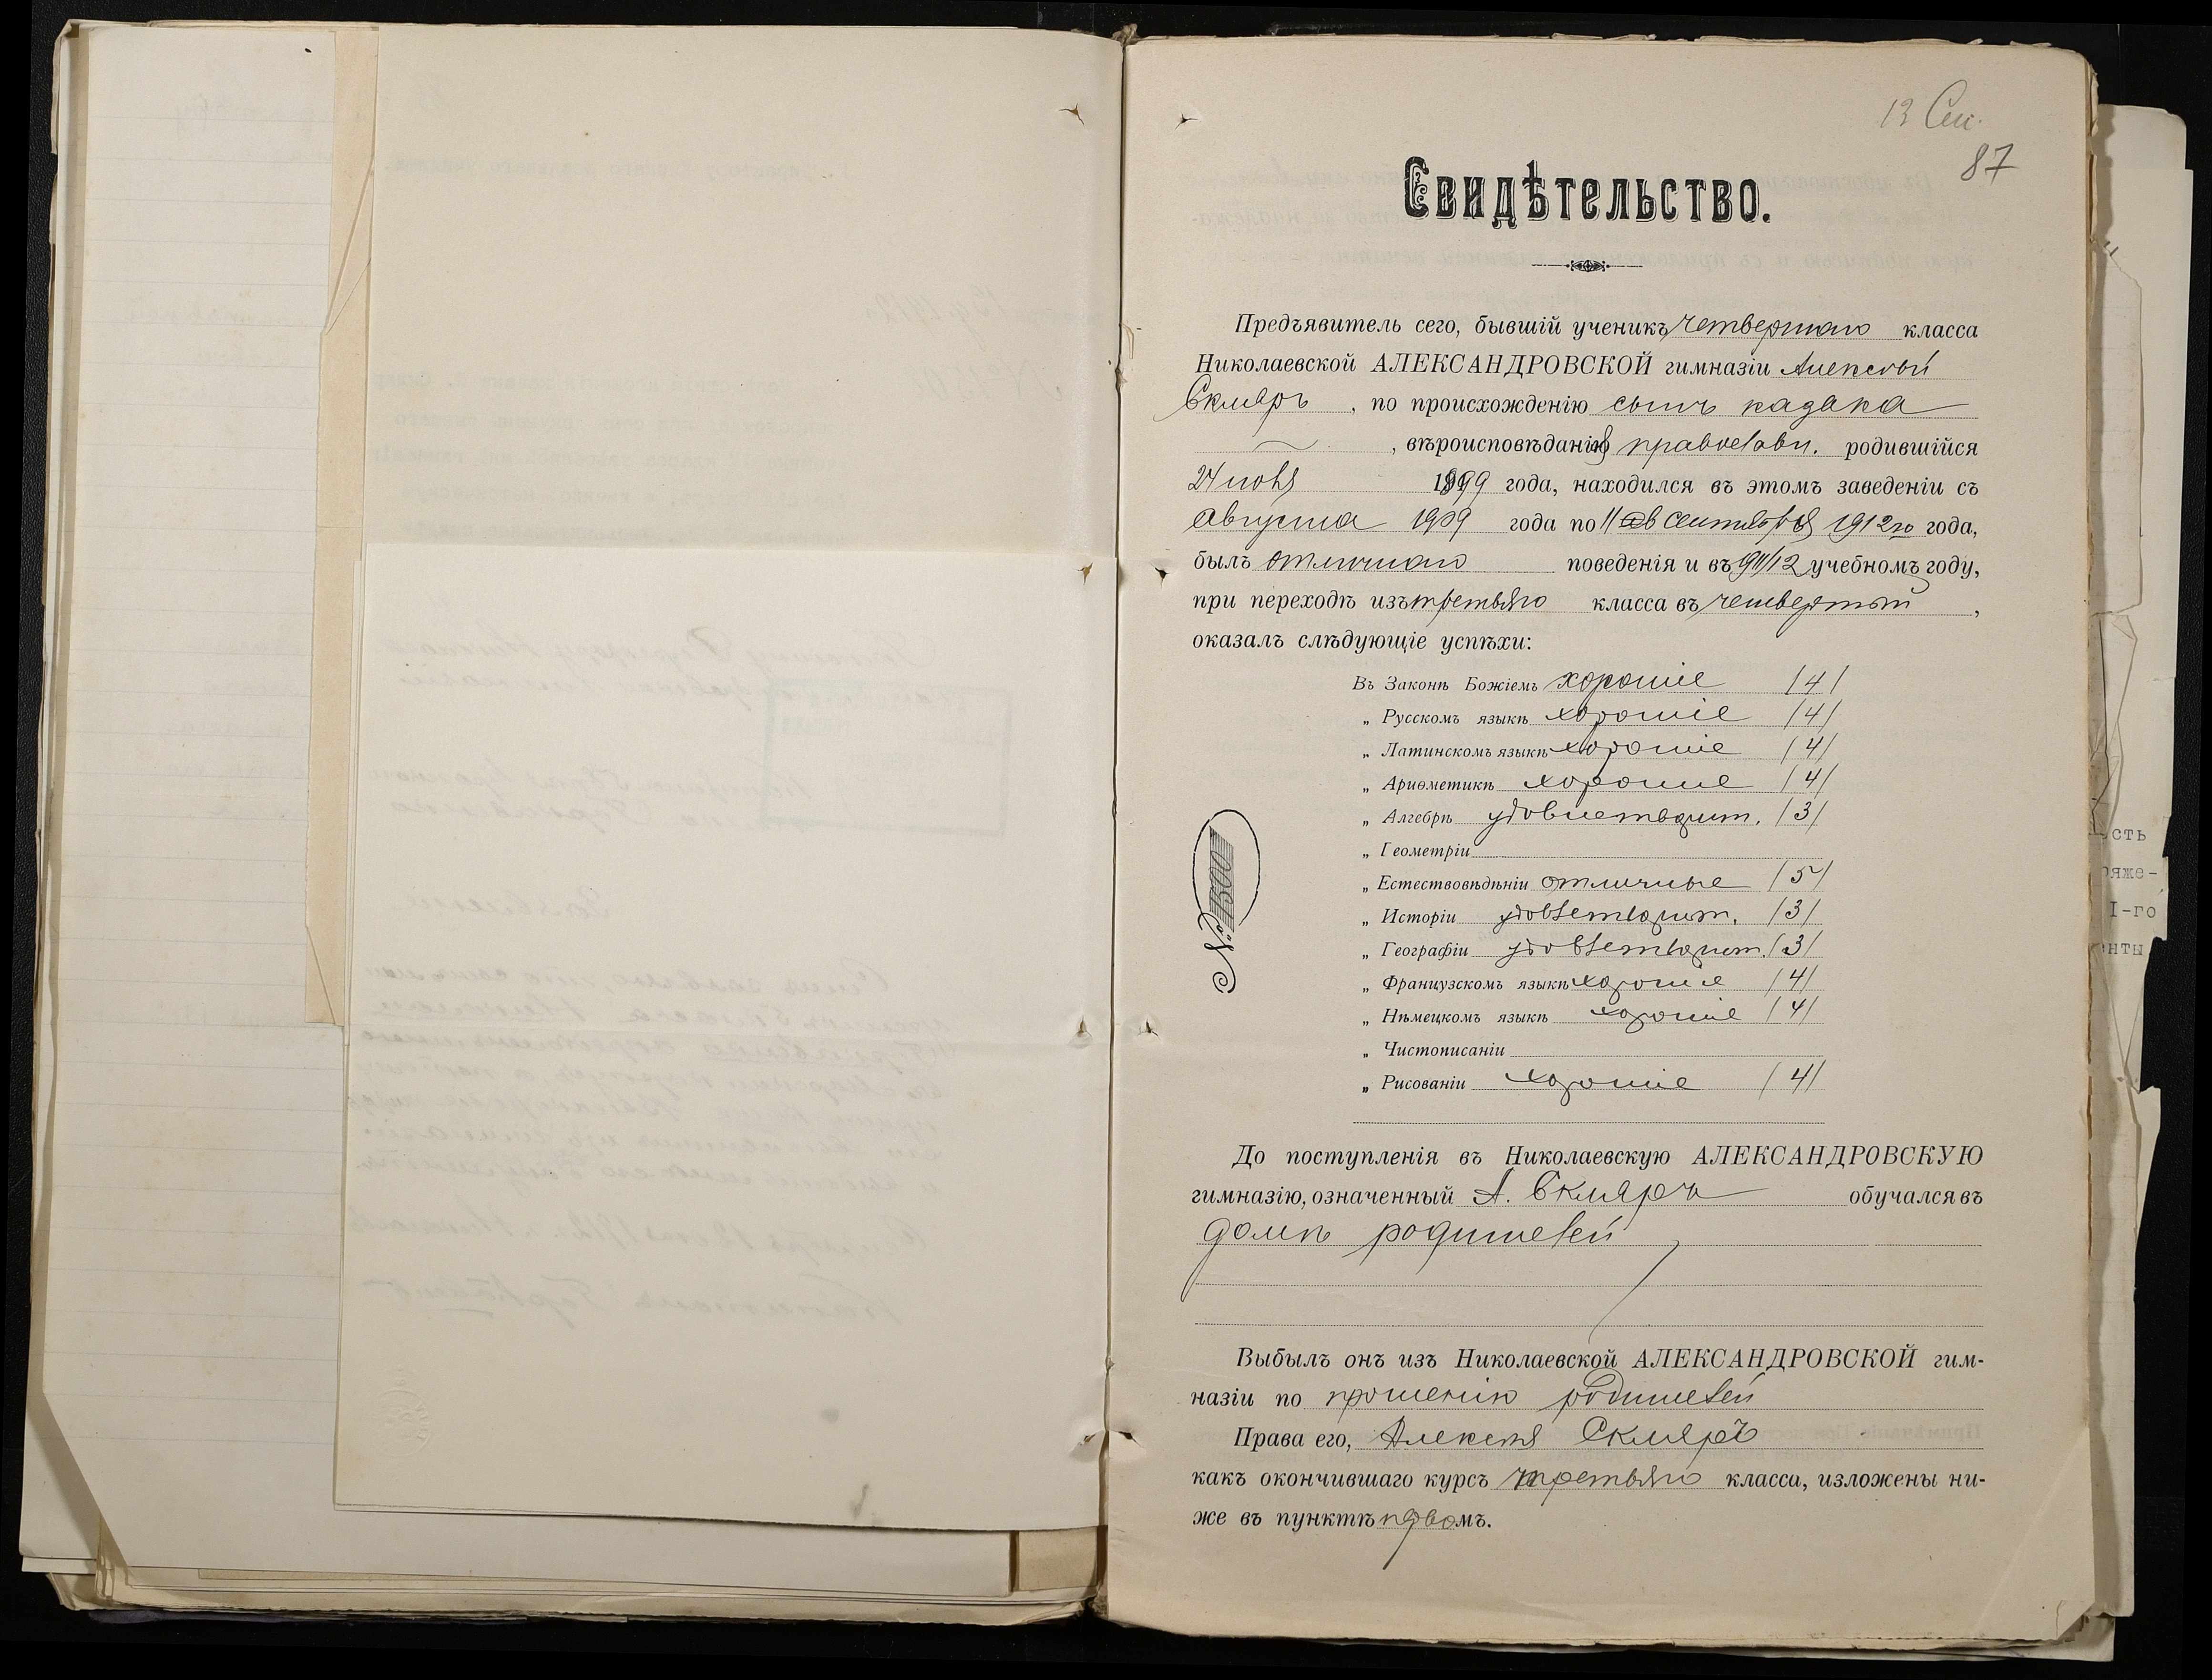 13 Сен.
87
Свидѣтельство.
Предъявитель сего, бывшій ученикъ четвертаго класса
Николаевской АЛЕКСАНДРОВСКОЙ гимназіи Алексѣй
Скляръ, по происхожденію сынъ казака
, вѣроисповѣданія православн. родившійся
24 іюня 1899 года, находился въ этомъ заведеніи съ
Августа 1909 года по 11 сентября 1912го года,
былъ отличнаго поведенія и въ 1911/12 учебномъ году,
при переходѣ изъ третьяго класса въ четвертый,
оказалъ слѣдующіе успѣхи:
Въ Законѣ Божіемъ хорошіе /4/
„ Русскомъ языкѣ хорошіе /4/
„ Латинскомъ языкѣ хорошіе /4/
„ Ариѳметикѣ хорошіе /4/
„ Алгебрѣ удовлетворит. /3/
„ Геометріи
„ Естествовѣдѣніи отличные /5/
„ Исторіи удовлетворит. /3/
„ Географіи удовлетворит. /3/
„ Французскомъ языкѣ хорошіе /4/
„ Нѣмецкомъ языкѣ хорошіе /4/
„ Чистописаніи
„ Рисованіи хорошіе /4/
№ 1500
До поступленія въ Николаевскую АЛЕКСАНДРОВСКУЮ
гимназію, означенный А. Скляръ обучался въ
домѣ родителей
Выбылъ онъ изъ Николаевской АЛЕКСАНДРОВСКОЙ гим-
назіи по прошенію родителей
Права его, Алексѣя Скляръ
какъ окончившаго курсъ третьяго класса, изложены ни-
же въ пунктѣ первомъ.
сть
яже-
I-го
нты